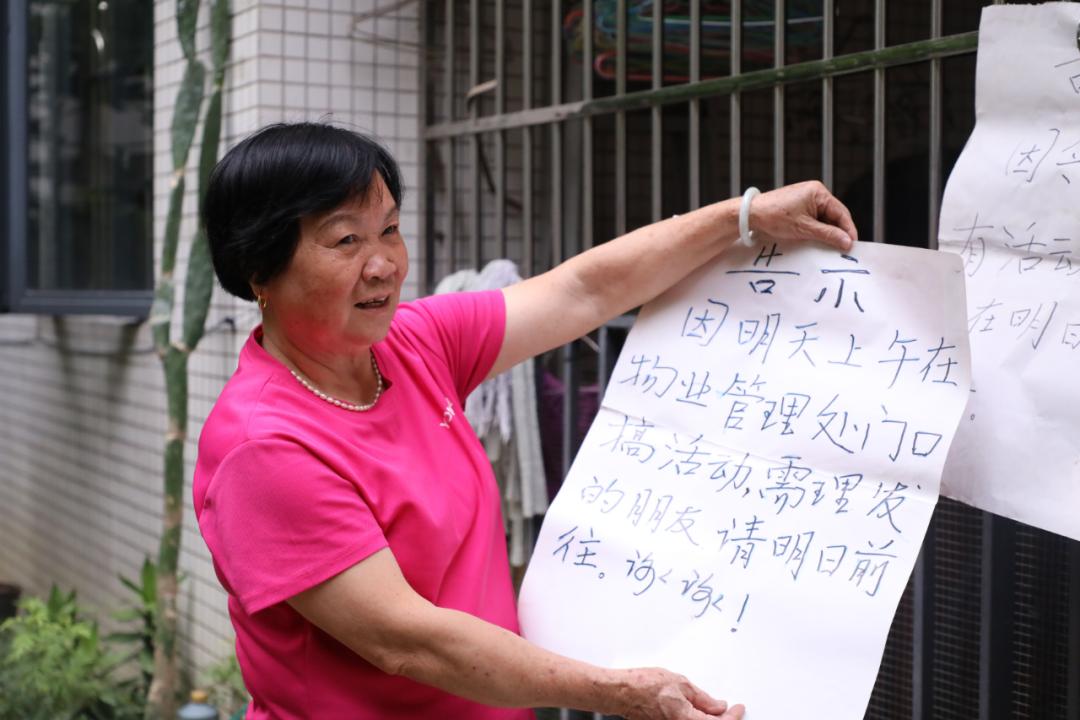 告示
因明天上午在
物业管理处门口
搞活动,需理发
的朋友请明日前
往。谢谢!
因
有活动
在明日